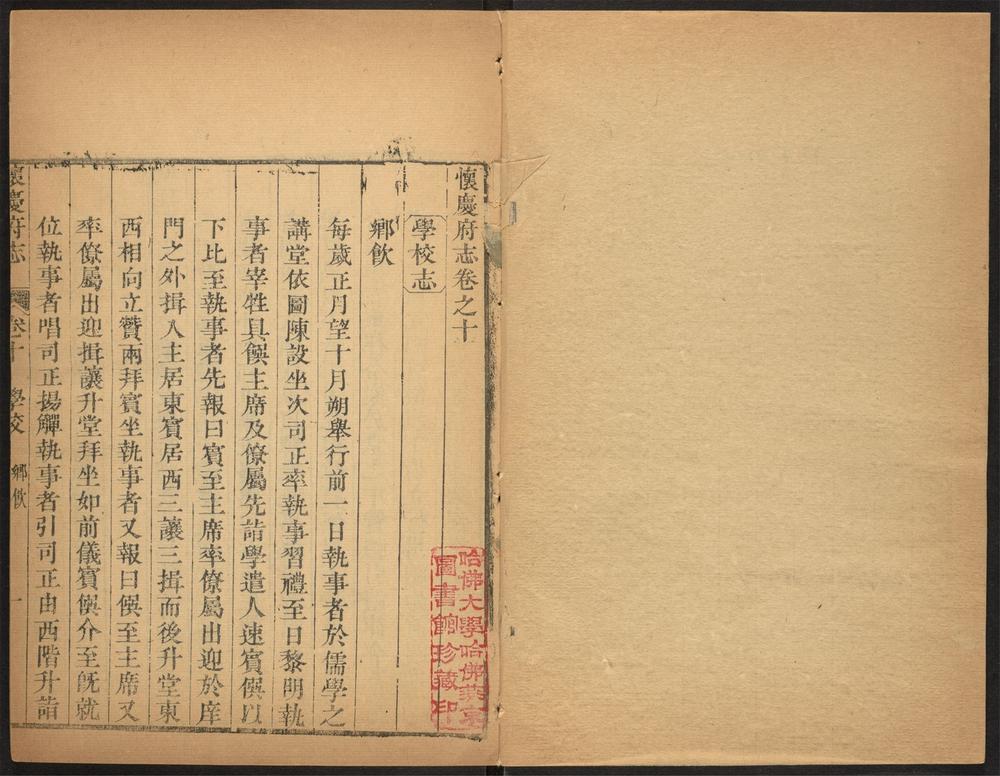 懷慶府志卷之十
學校志
鄉飲
每歲正月望十月朔舉行前一日執事者於儒學之
講堂依圖陳設坐次司正率執事習禮至日黎明執
事者宰牲具饌主席及僚屬先詣學遣人速賓僎以
下比至執事者先報曰賓至主席率僚屬出迎於庠
門之外揖入主居東賓居西三讓三揖而後升堂東
西相向立贊兩拜賓坐執事者又報曰僎至主席又
率僚屬出迎揖讓升堂拜坐如前儀賓僎介至旣就
位執事者唱司正揚觶執事者引司正由西階升詣
懷慶府志 卷十 學校 鄉飲 一
哈佛大學哈佛燕京
圖書館珍藏印